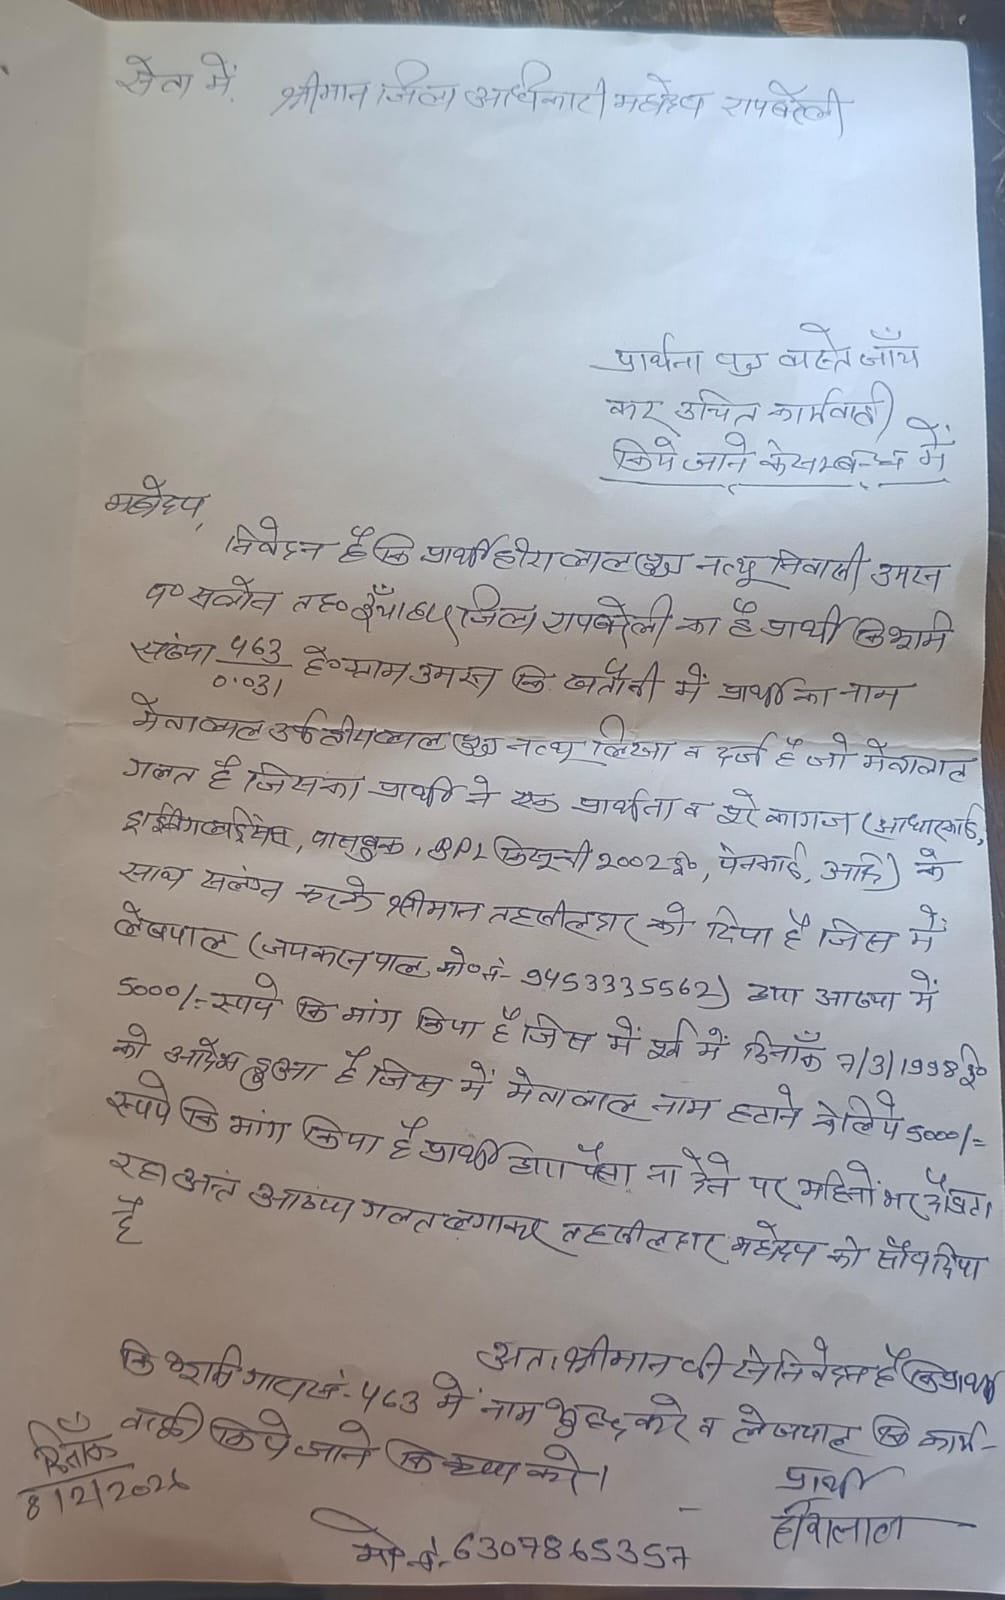 सेवा में,
श्रीमान जिला अधिकारी महोदय रायबरेली
प्रार्थना पत्र वास्ते जाँच
कर उचित कार्यवाही
किये जाने के सम्बन्ध में
महोदय,
निवेदन है कि प्रार्थी हीरालाल पुत्र नत्थू निवासी उमरन
प० सलोन तह० ऊँचाहार जिला रायबरेली का है प्रार्थी कि भूमि
संख्या 463/0.031 है० ग्राम उमरन कि खतौनी में प्रार्थी का नाम
मेवालाल उर्फ हीरालाल पुत्र नत्थू लिखा व दर्ज है जो मेवालाल
गलत है जिसका प्रार्थी ने एक प्रार्थना व पूरे कागज (आधारकार्ड,
ड्राईविंग लाईसेंस, पासबुक, BPL कि सूची 2002 ई०, पेनकार्ड, आदि) के
साथ सलंग्न करके श्रीमान तहसीलदार को दिया है जिस में
लेखपाल (जयकरन पाल, मो० नं- 9453335562) द्वारा आख्या में
5000/= रुपये कि मांग किया है जिस में पूर्व में दिनाँक 7/3/1998 ई०
को आदेश हुआ है जिस में मेवालाल नाम हटाने के लिये 5000/=
रुपये कि मांग किया है प्रार्थी द्वारा पैसा ना देने पर महिनों भर दौड़ाता
रहा अंत आख्या गलत लगाकर तहसीलदार महोदय को सौंप दिया
है
अतः श्रीमान जी से निवेदन है कि प्रार्थी
कि भूमि गाटा सं- 463 में नाम शुद्ध करे व लेखपाल कि कार्य-
वाही किये जाने कि कृपा करे।
दिनाँक
8/2/2026
प्रार्थी
हीरालाल
मो० नं- 6307865357